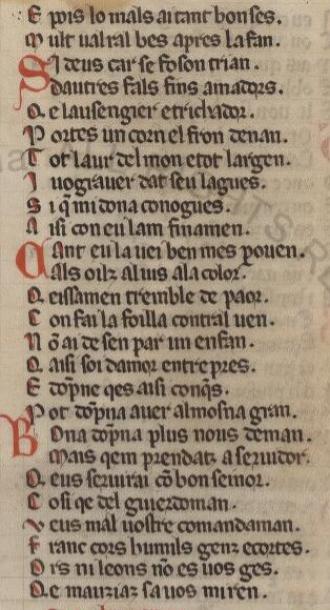 E pois lo mals aitant bon ses.
Mult ual ral bes apres lafan.
Si deus car se foson trian.
Dautres fals fins amadors.
Qe lausengier etrichador.
Portes un corn el fron denan.
Tot laur del mon etot largen.
I uograuer dat seu lagues.
Si q̃ mi dona conogues.
Aisi con eu lam finamen.
Cant eu la uei ben mes pouen.
Als oilz al uis ala color.
Qeissamen tremble de paor.
Con fai la foilla contral uen.
Nõ ai de sen par un enfan.
Qaisi soi damor entrepres.
E dõpne qes aisi conq̃s.
Pot dõpna auer almosna gran.
Bona dõpna plus nous deman.
Mais qem prendatz a seruidor.
Qeus seruirai cõ bon seinor.
Cosi qe del guierdoman.
Veus mal uostre comandaman.
Franc cors humils genz ecortes.
Ors ni leons nõ es uos ges.
Qe mauziaz sa uos miren.